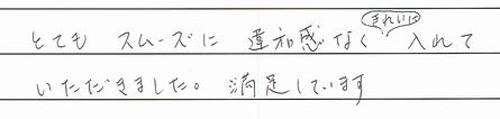 とても スムーズに 違和感なく きれいに 入れて
いただきました。満足しています